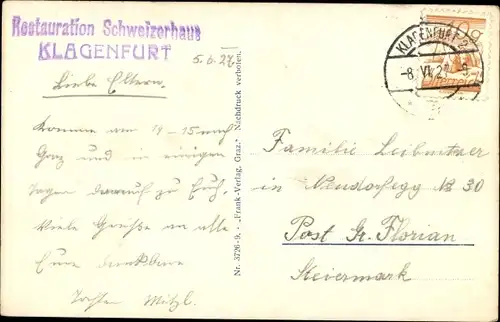 Restauration Schweizerhaus
KLAGENFURT
5.6.27.
Liebe Eltern.
Komme am 14-15 nach
Graz und in einigen
Tagen darauf zu Euch,
Viele Grüße an alle
Eure dankbare
Mitzl.
Nr. 3726-9. - "Frank-Verlag, Graz." Nachdruck verboten.
KLAGENFURT 2
-8. VI. 2
Österreich
Familie Leibnitzer
in Neudorfegg № 30
Post Gr. Florian
Steiermark